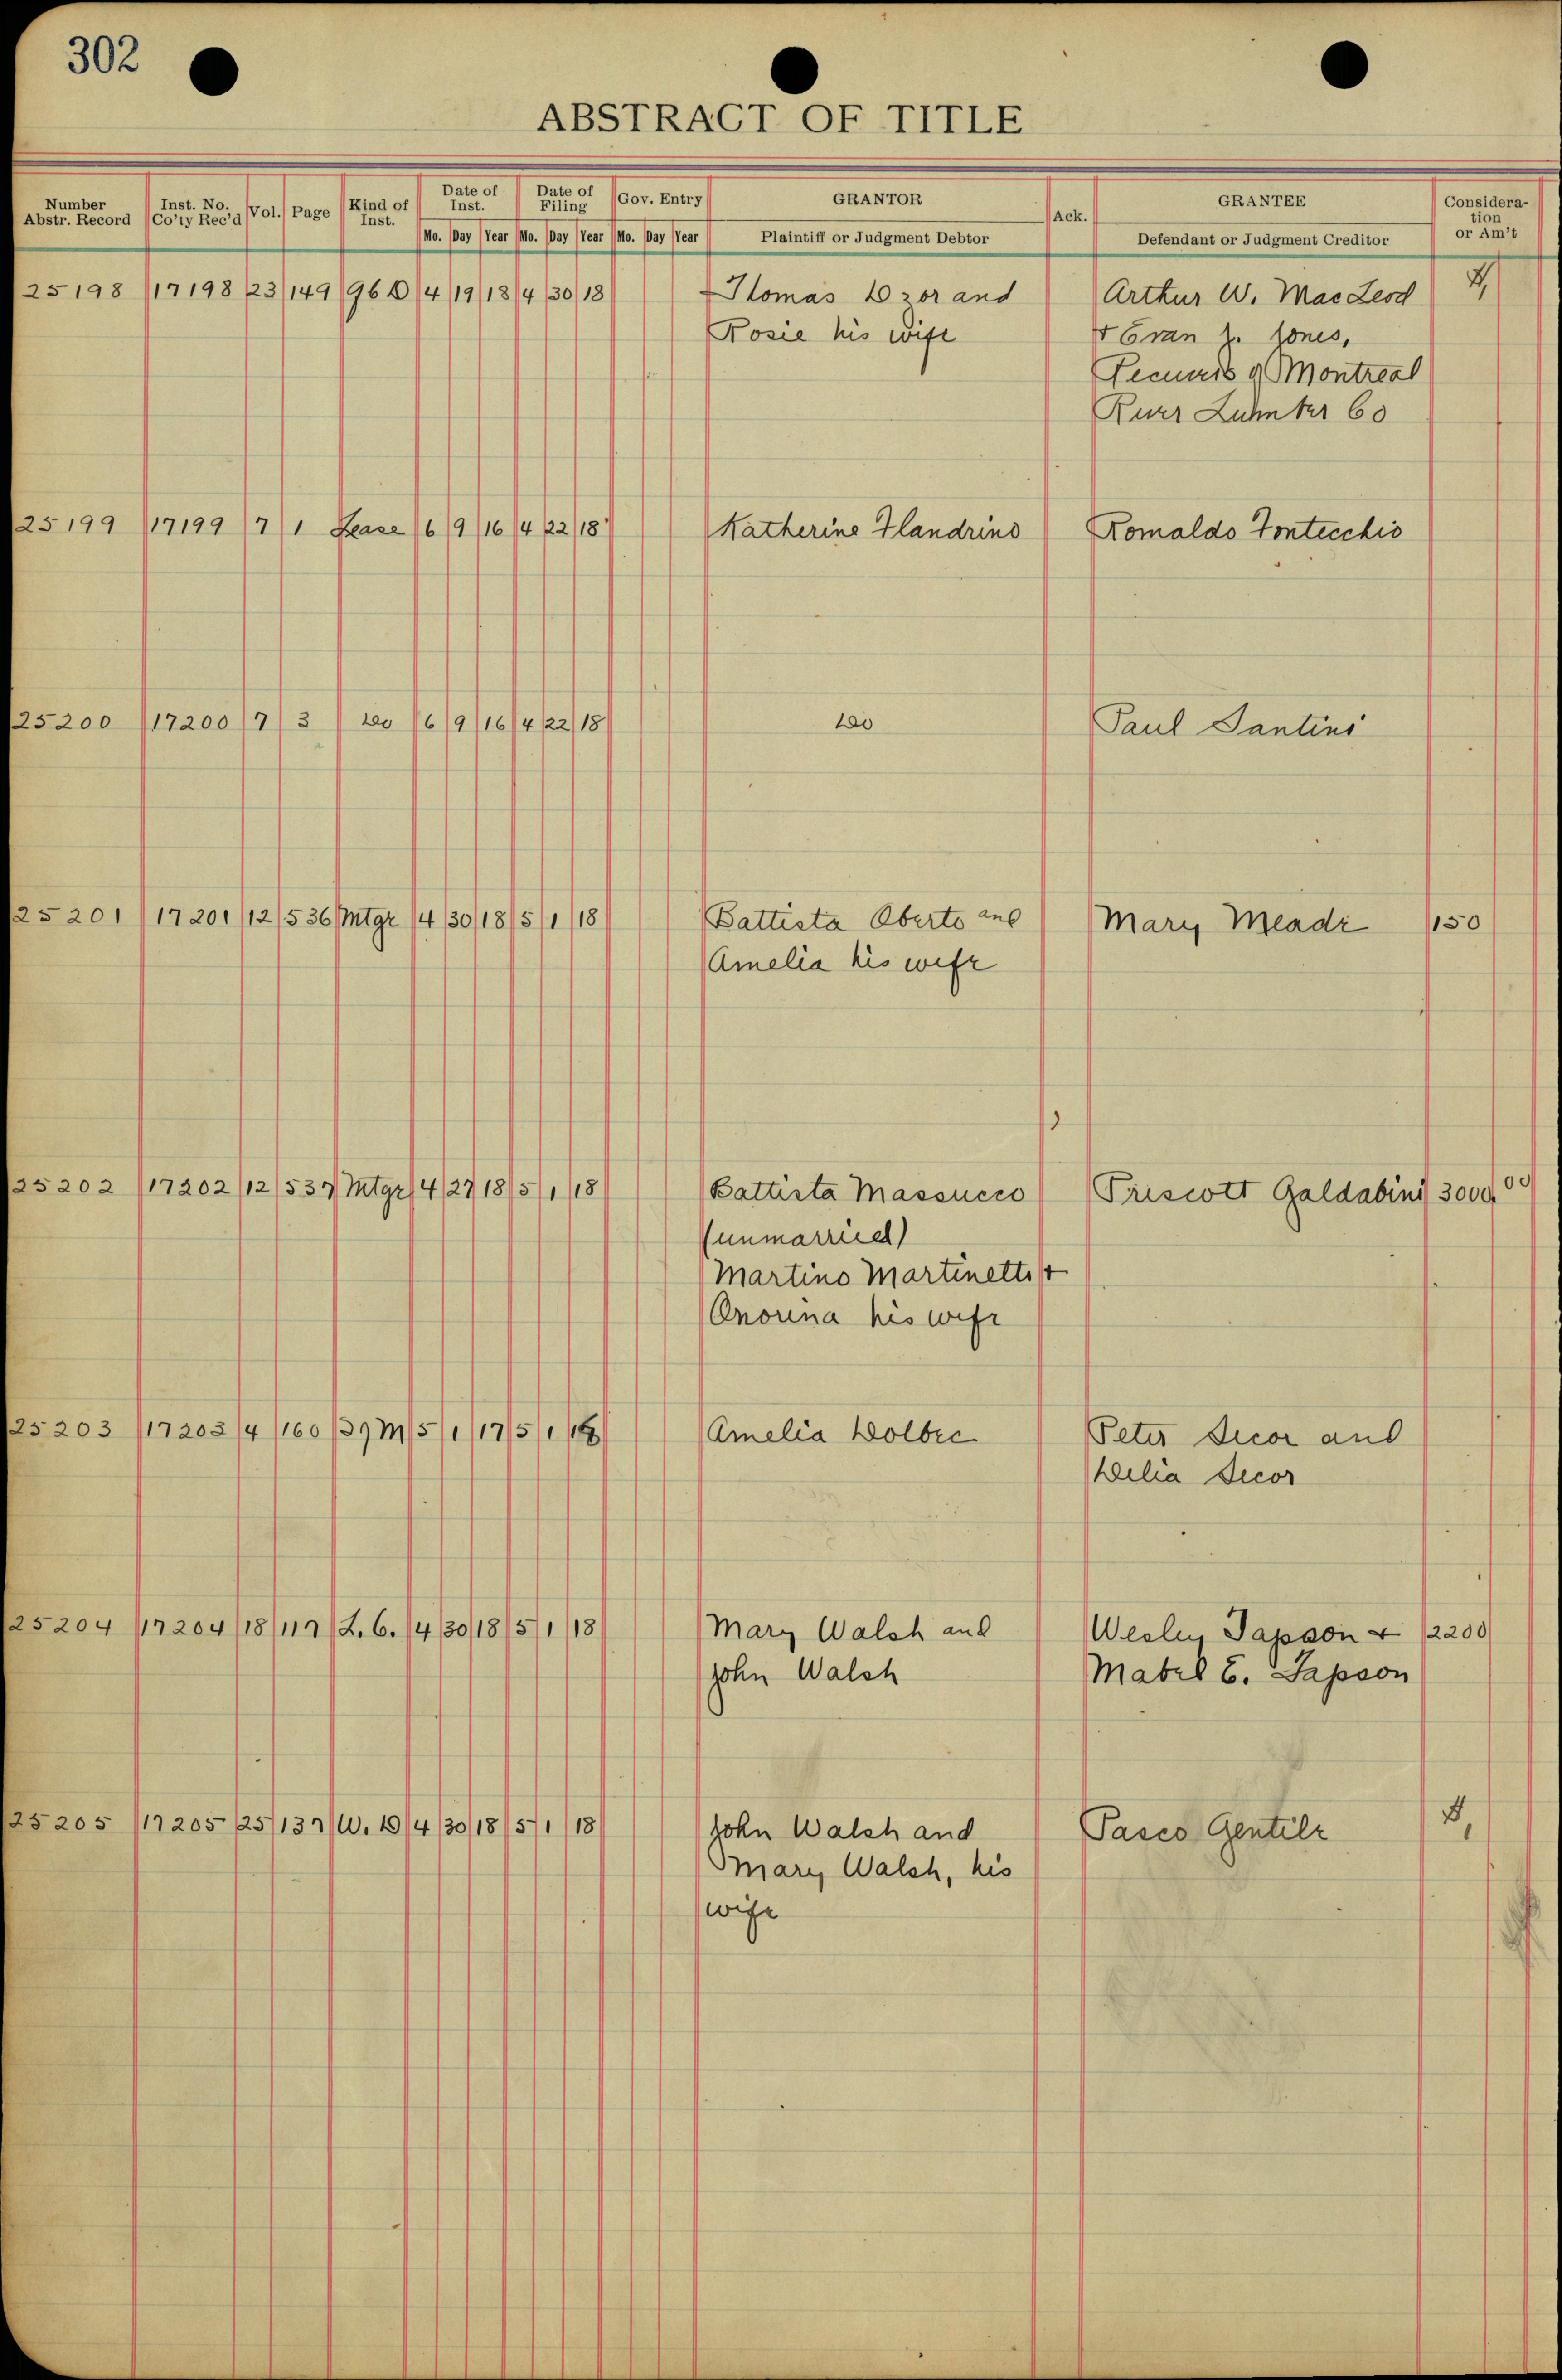 302
ABSTRACT OF TITLE
Number Abstr. Record Inst. No. Co'ty Rec'd Vol. Page Kind of Inst. Date of Inst. Date of Filing Gov. Entry GRANTOR Ack. GRANTEE Consideration or Am't
Mo. Day Year Mo. Day Year Mo. Day Year Plaintiff or Judgment Debtor Defendant or Judgment Creditor
25198 17198 23 149 4 19 18 4 30 18 Thomas Dzor and Arthur W. MacLeod
Rosie his wife + Evan J. Jones,
Montreal
River Lumber Co
25199 17199 7 1 Lease 6 9 16 4 22 18 Katherine Flandrino Romaldo Fontecchio
25200 17200 7 3 Do 6 9 16 4 22 18 Do Paul Santini
25201 17201 12 536 Mtge 4 30 18 5 1 18 Battista Oberto and Mary Meade 150
Amelia his wife
25202 17202 12 537 Mtge 4 27 18 5 1 18 Battista Massucco Prescott Galdabini 3000 00
(unmarried)
Martino Martinetti +
Onorina his wife
25203 17203 4 160 5 1 17 5 1 18 Amelia Dolbec Peter Decor and
Delia Decor
25204 17204 18 117 L. C. 4 30 18 5 1 18 Mary Walsh and Wesley Sapson + 2200
John Walsh Mabel E. Sapson
25205 17205 25 137 W. D 4 30 18 5 1 18 John Walsh and Pasco Gentile
Mary Walsh, his
wife